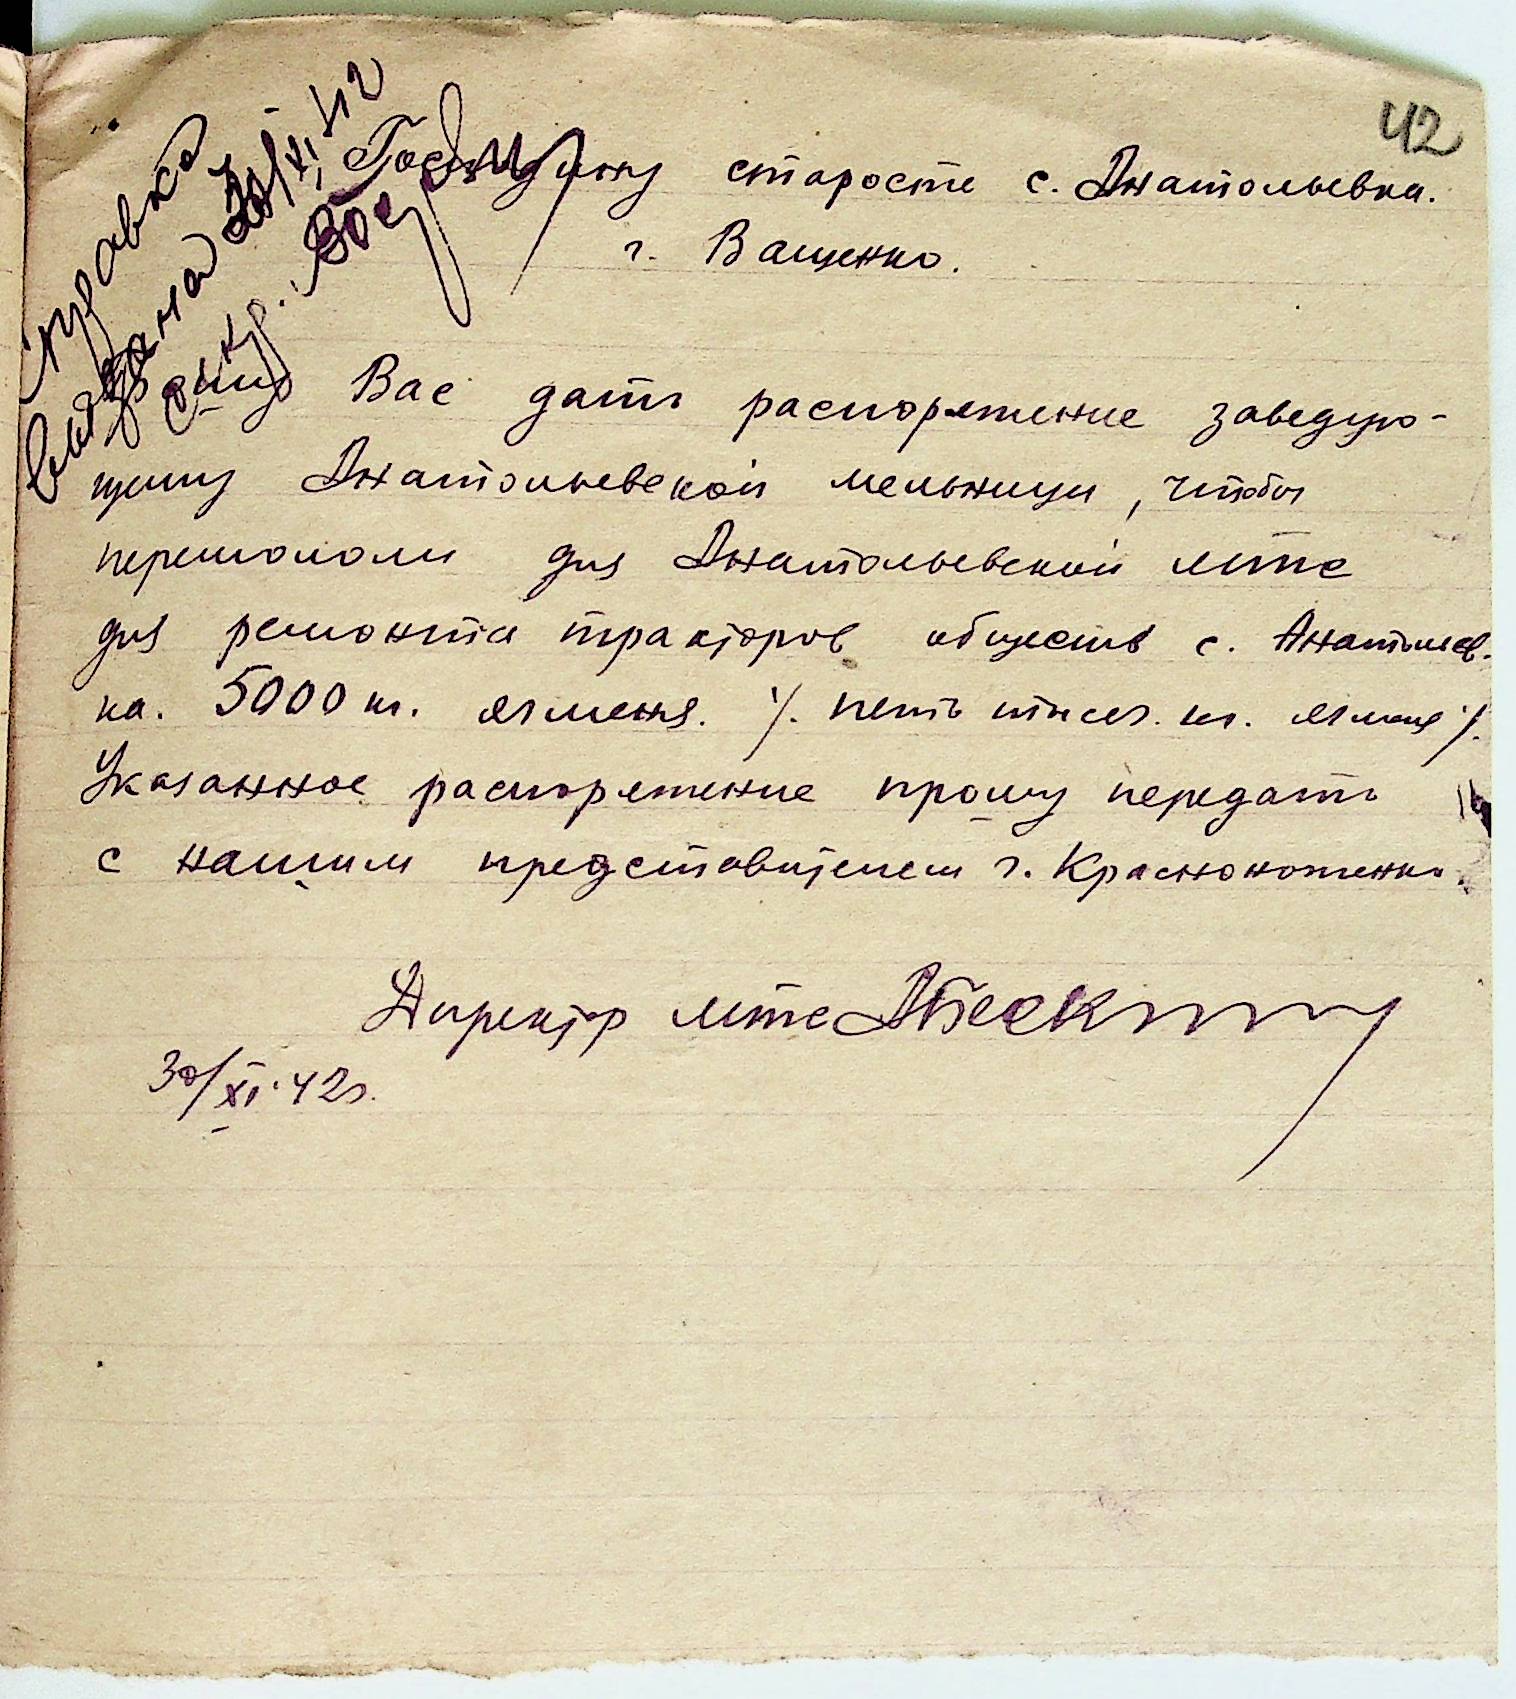 42
Справка
выдана 30/XI 42
секр.
Господину старосте с. Анатольевка.
г. Ващенко.
Прошу Вас дать распоряжение заведую-
щему Анатольевской мельницы, чтобы
перемололи для Анатольевской мтс
для ремонта тракторов обществ с. Анатольев-
ка. 5000 кг. ячменя. /. пять тысяч. кг. ячменя /.
Указанное распоряжение прошу передать
с нашим представителем г. Красноноженко.
Директор мтс
30/XI.42г.